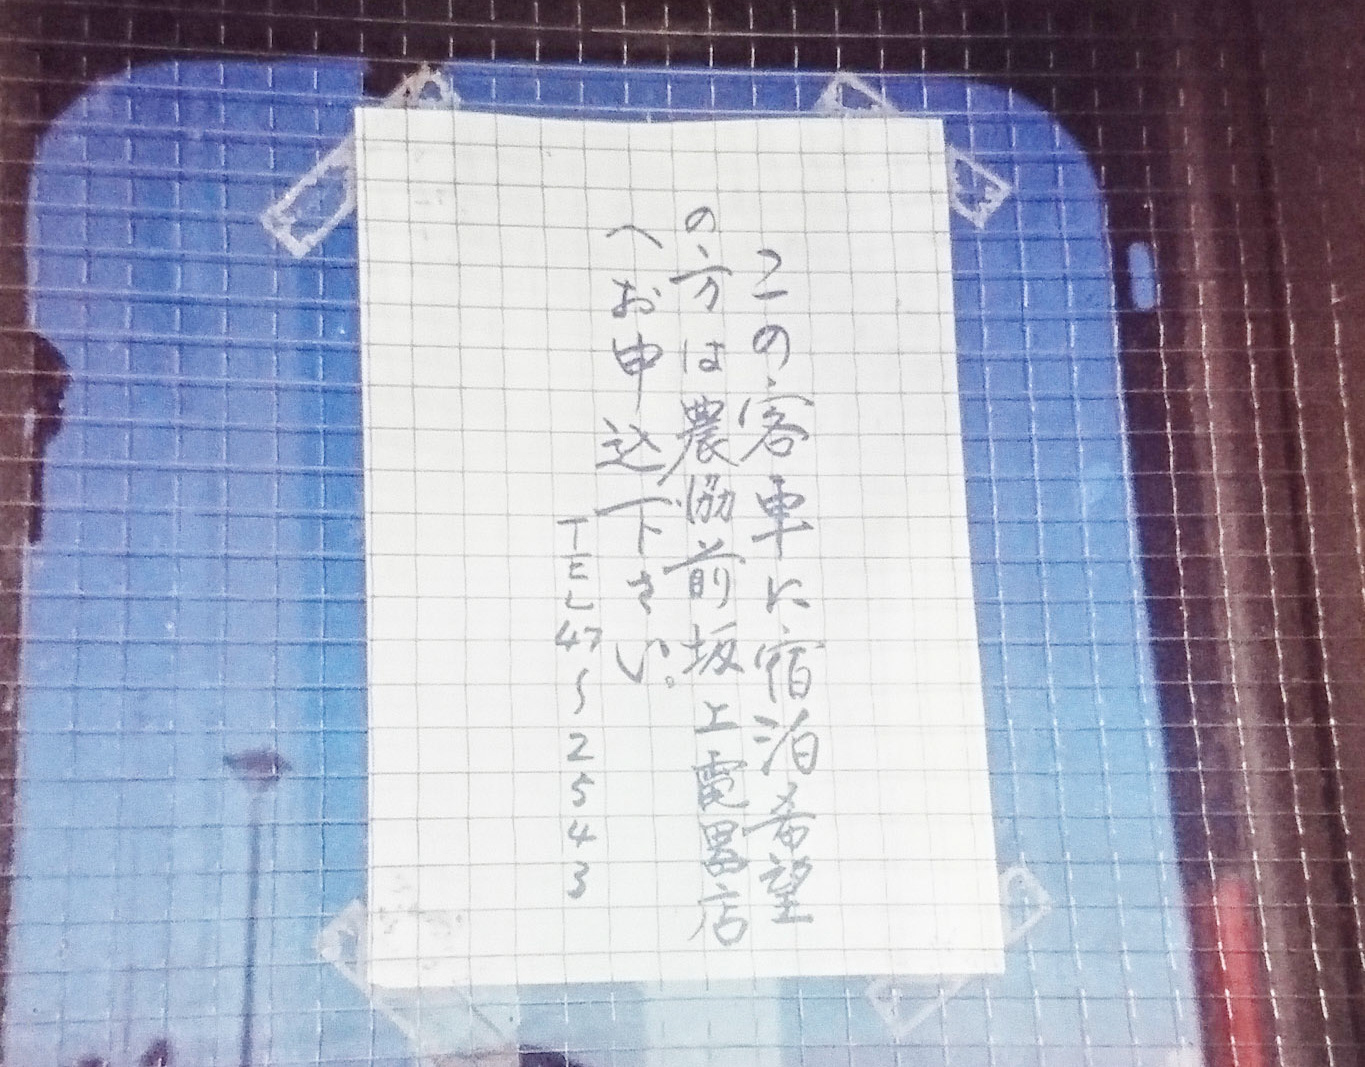 この客車に宿泊希望
の方は農協前坂上電器店
へお申込下さい。
TEL47〜2543